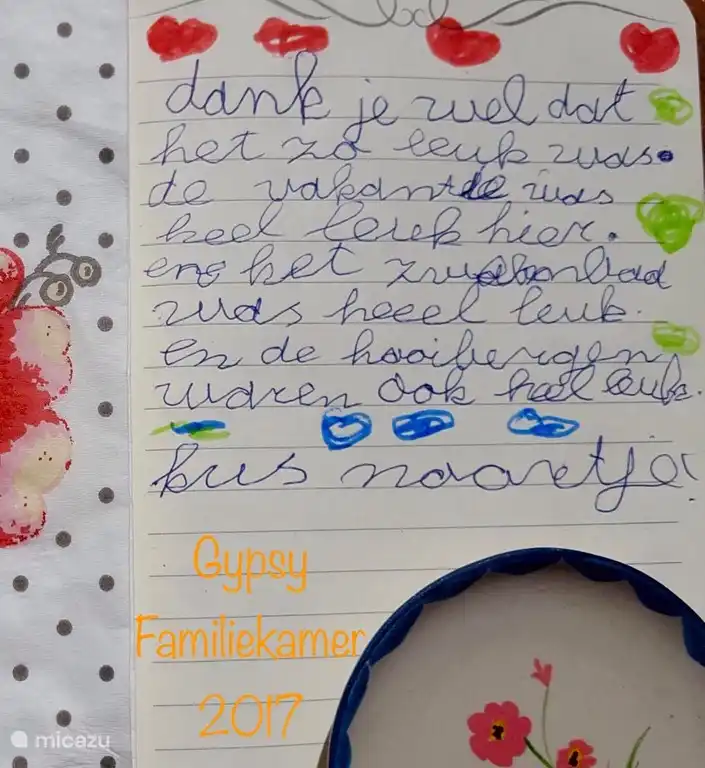 dank je wel dat
het zo leuk was.
de vakantie was
heel leuk hier.
en het zwembad
was heeel leuk.
en de hooibergen
waren ook heel leuk.
kus naartje!
Gypsy
Familiekamer
2017
micazu